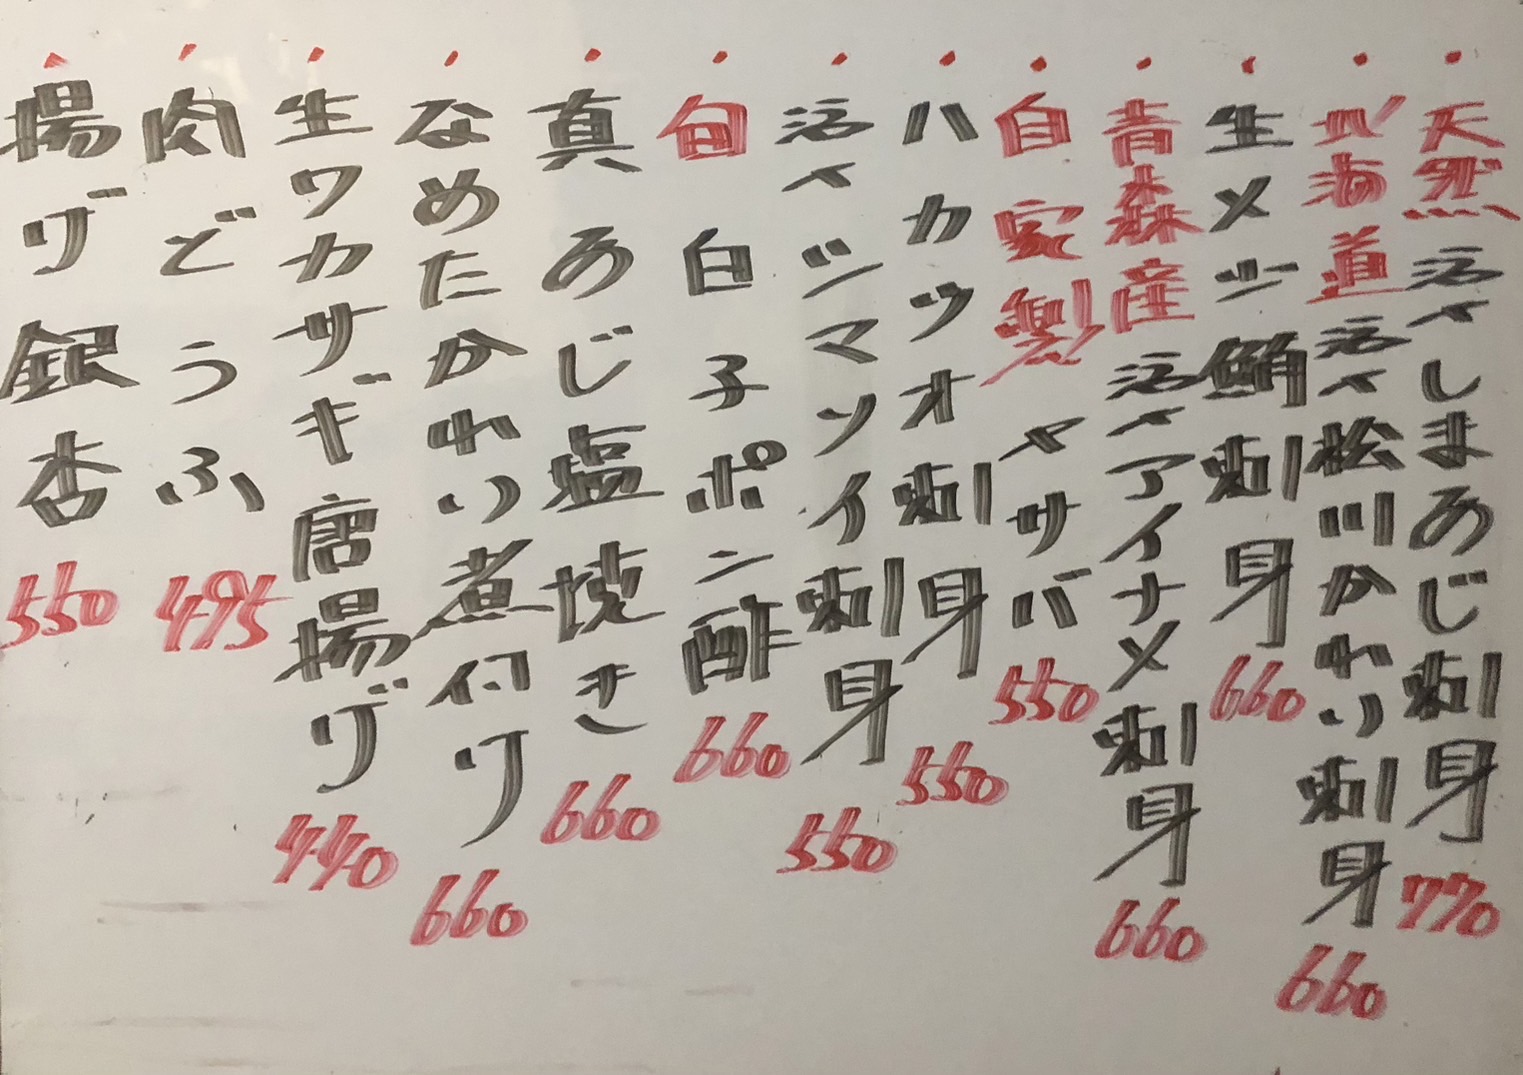 天然活〆しまあじ刺身 770
北海道活〆松川かれい刺身 660
生メジ鮪刺身 660
青森産活〆アイナメ刺身 660
自家製〆サバ 550
ハカツオ刺身 550
活〆シマソイ刺身 550
旬白子ポン酢 660
真あじ塩焼き 660
なめたかれい煮付け 660
生ワカサギ唐揚げ 440
肉どうふ 495
揚げ銀杏 550